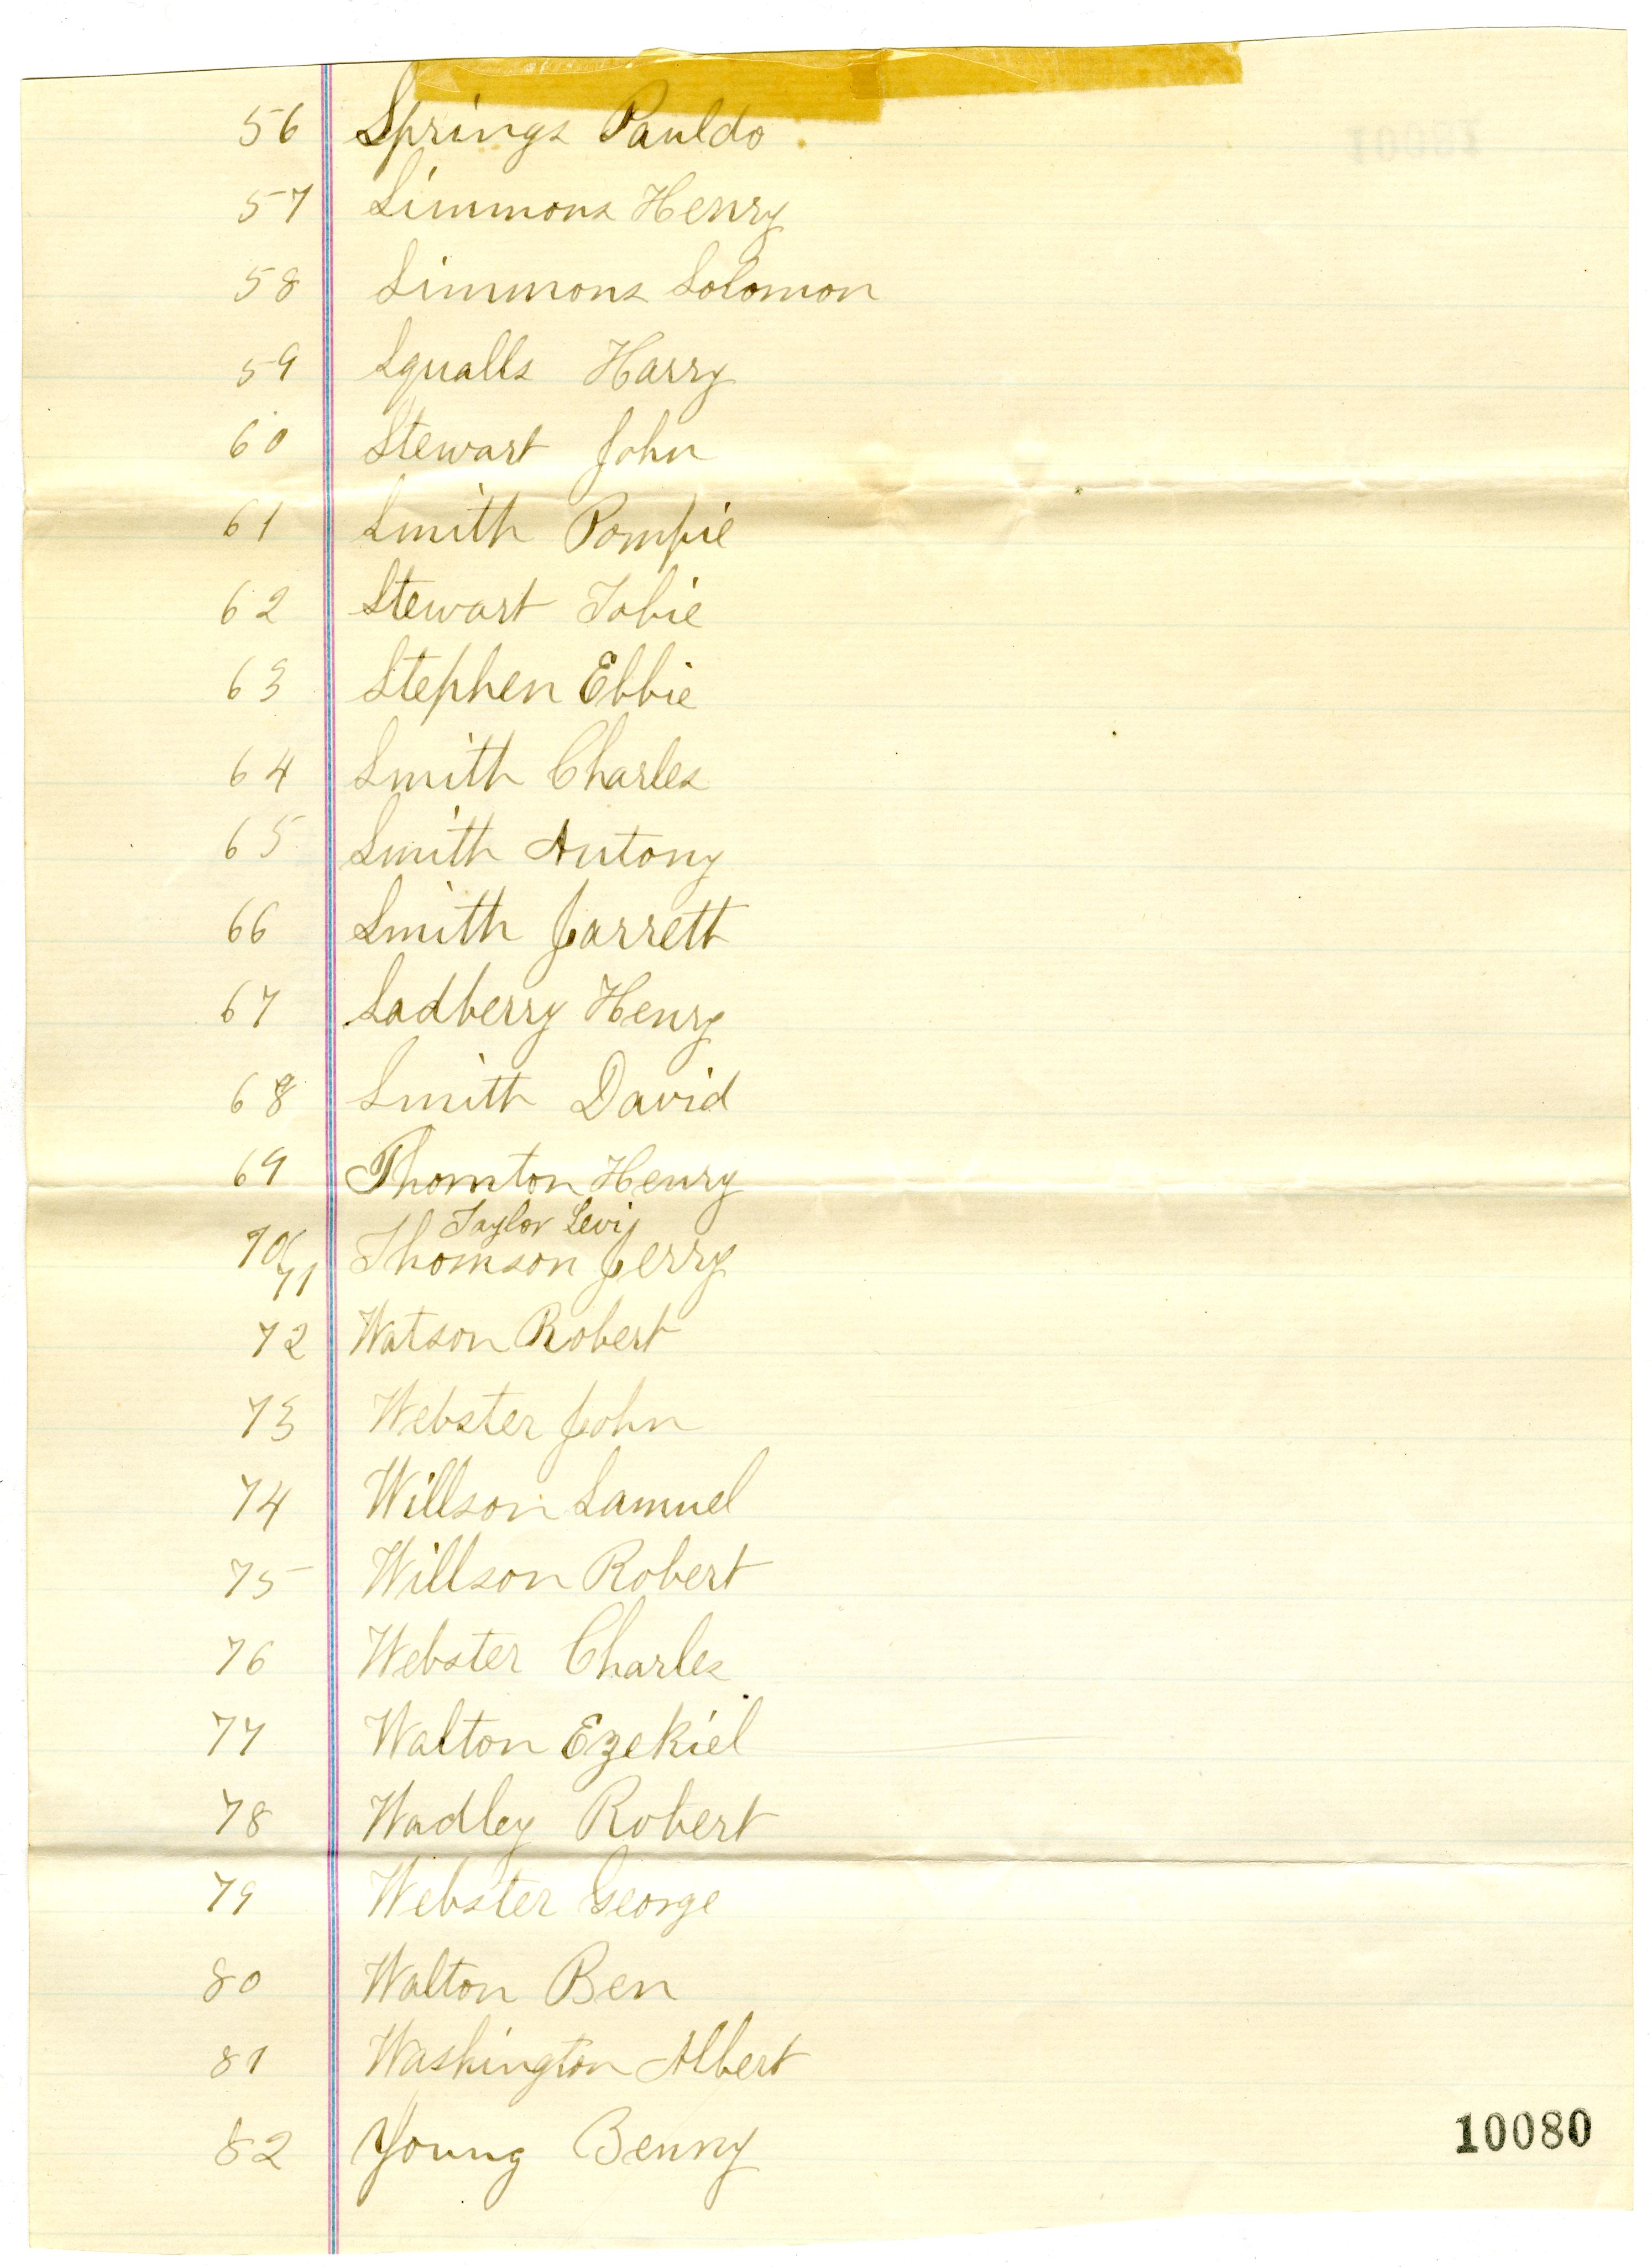 56 Springs Pauldo
57 Simmons Henry
58 Simmons Solomon
59 Squalls Harry
60 Stewart John
61 Smith Pompie
62 Stewart Tobie
63 Stephen Ebbie
64 Smith Charles
65 Smith Antony
66 Smith Jarrett
67 Sadberry Henry
68 Smith David
69 Thornton Henry
70 Taylor Levi
71 Thomson Jerry
72 Watson Robert
73 Webster John
74 Willson Samuel
75 Willson Robert
76 Webster Charles
77 Walton Ezekiel
78 Wadley Robert
79 Webster George
80 Walton Ben
81 Washington Albert
82 Young Benny
10080